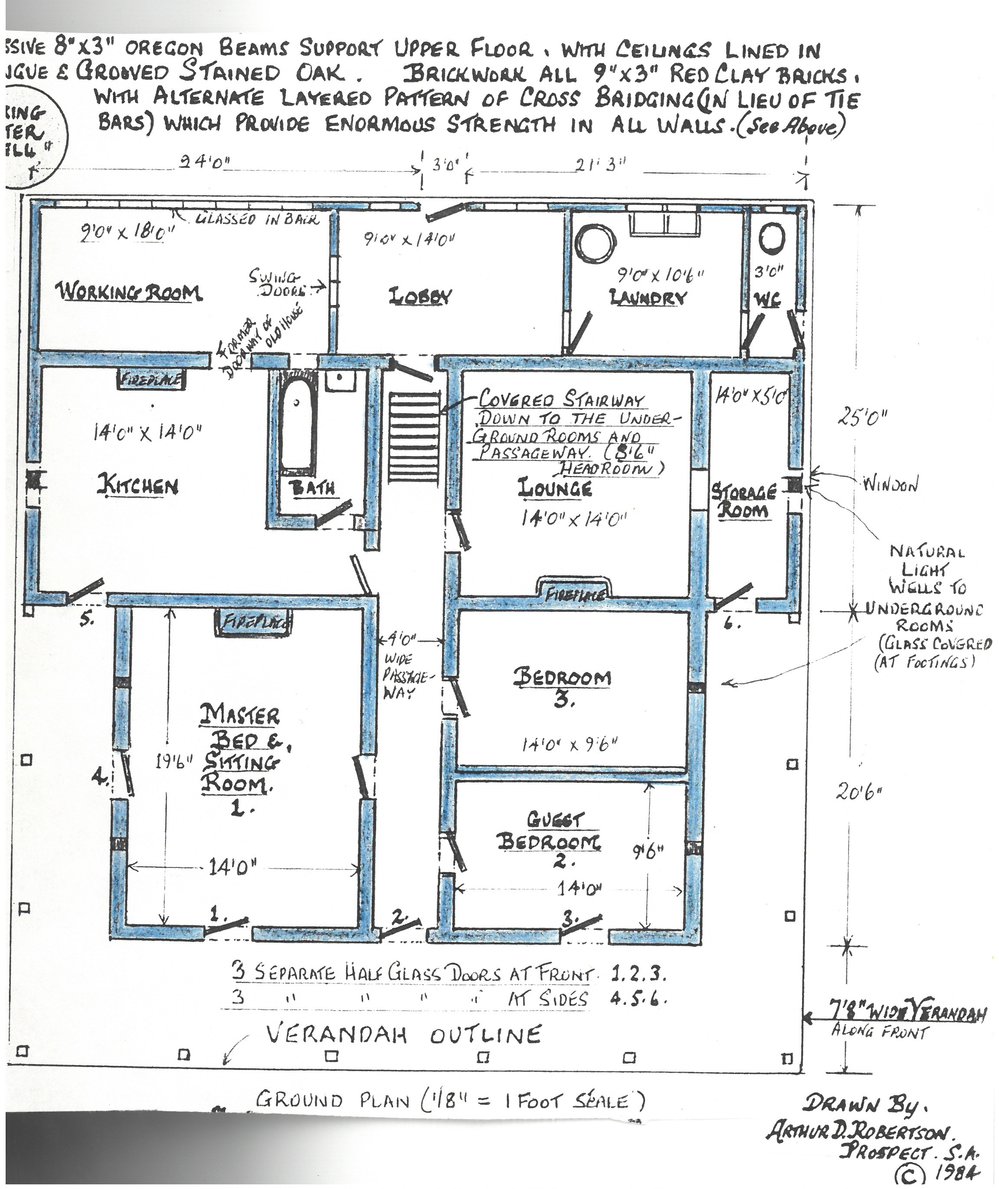 SSIVE 8"x3" OREGON BEAMS SUPPORT UPPER FLOOR, WITH CEILINGS LINED IN
NGUE & GROOVED STAINED OAK. BRICKWORK ALL 9"x3" RED CLAY BRICKS,
WITH ALTERNATE LAYERED PATTERN OF CROSS BRIDGING (IN LIEU OF TIE
BARS) WHICH PROVIDE ENORMOUS STRENGTH IN ALL WALLS. (See Above)
KING
TER
ELL"
24'0"
3'0"
21'3"
GLASSED IN BACK
9'0" x 18'0"
WORKING ROOM
SWING
DOORS
9'0" x 14'0"
LOBBY
9'0" x 10'6"
LAUNDRY
3'0"
WC
FORMER
DOORWAY OF
OLD HOUSE
FIREPLACE
14'0" x 14'0"
KITCHEN
BATH
COVERED STAIRWAY
DOWN TO THE UNDER-
GROUND ROOMS AND
PASSAGEWAY. (8'6"
HEADROOM)
LOUNGE
14'0" x 14'0"
FIREPLACE
14'0" x 5'0"
STORAGE
ROOM
25'0"
WINDOW
NATURAL
LIGHT
WELLS TO
UNDERGROUND
ROOMS
(GLASS COVERED
(AT FOOTINGS)
5.
6.
FIREPLACE
4'0"
WIDE
PASSAGE-
WAY
MASTER
BED &
SITTING
ROOM.
1.
19'6"
14'0"
4.
BEDROOM
3.
14'0" x 9'6"
GUEST
BEDROOM
2.
9'6"
14'0"
20'6"
1.
2.
3.
3 SEPARATE HALF GLASS DOORS AT FRONT. 1.2.3.
3 " " " " AT SIDES 4.5.6.
7'8" WIDE VERANDAH
ALONG FRONT
VERANDAH OUTLINE
GROUND PLAN (1/8" = 1 FOOT SCALE)
DRAWN BY.
ARTHUR D. ROBERTSON.
PROSPECT. S.A.
© 1984